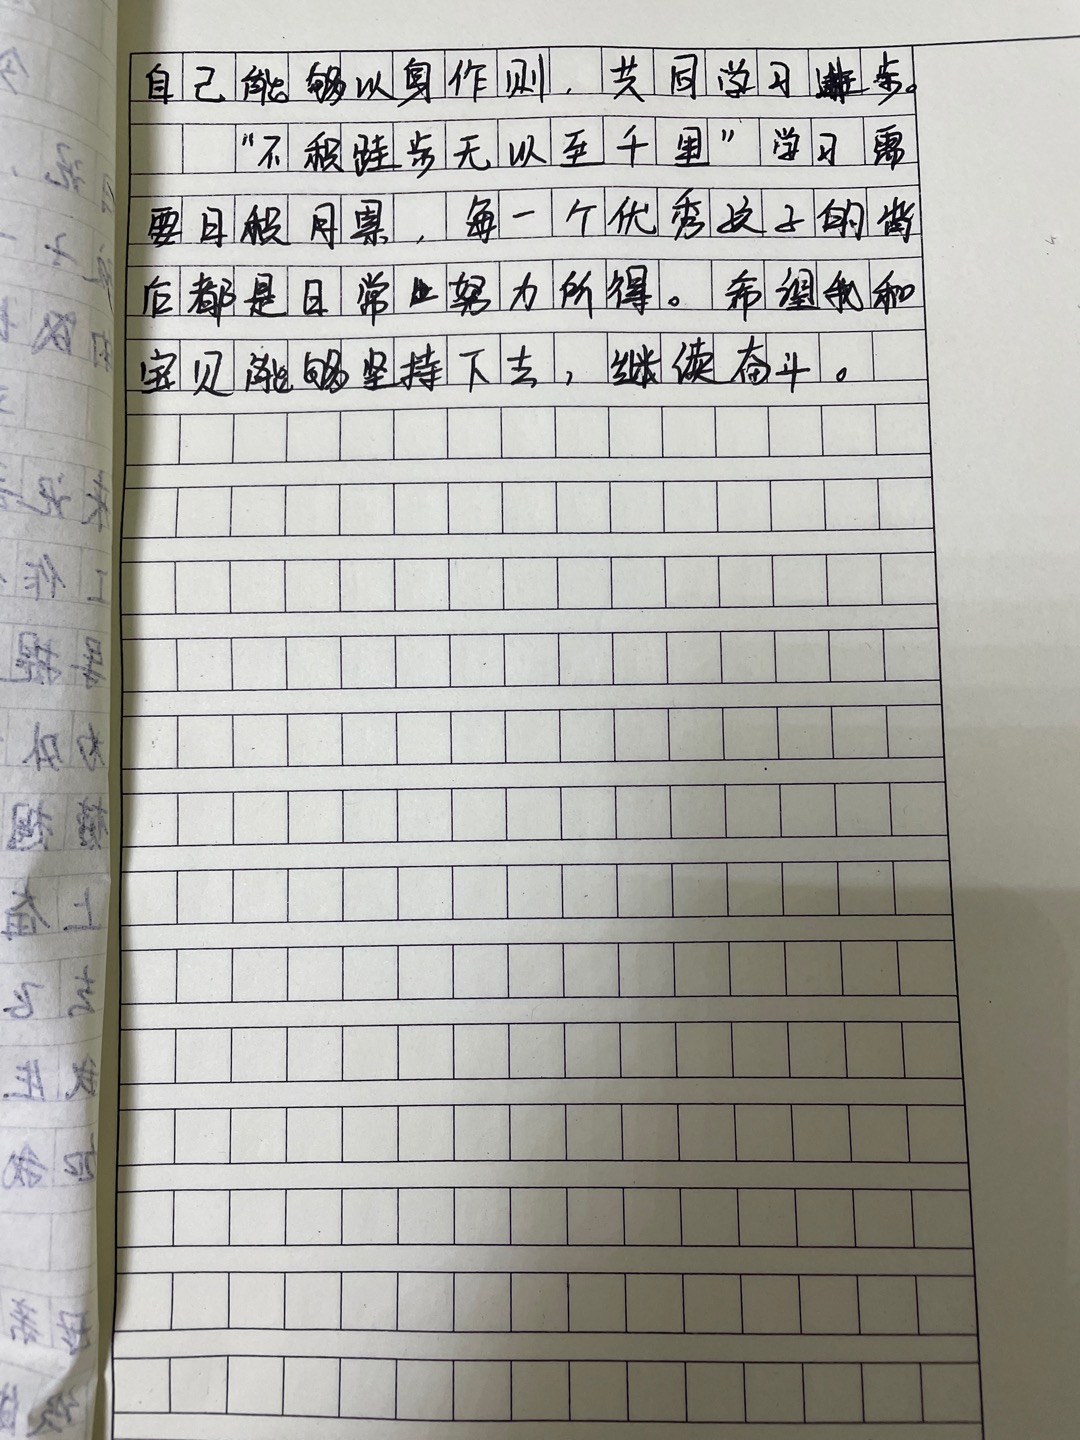 自己能够以身作则，共同学习进步。
“不积跬步无以至千里”学习需
要日积月累，每一个优秀孩子的背
后都是日常上努力所得。希望我和
宝贝能够坚持下去，继续奋斗。